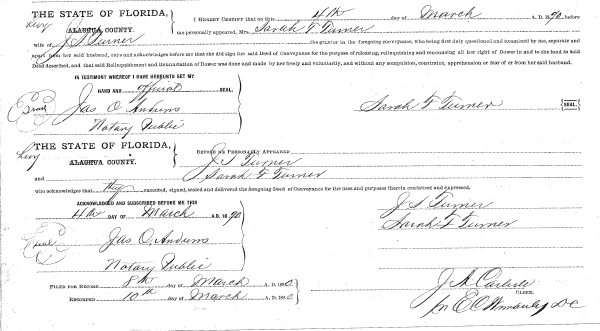 THE STATE OF FLORIDA,
Levy
ALACHUA COUNTY.
I HEREBY CERTIFY that on this 4th day of March A. D. 1890 before
me personally appeared, Mrs. Sarah F Turner
wife of J. S. Turner the grantor in the foregoing conveyance, who being first duly questioned and examined by me, separate and
apart from her said husband, says and acknowledges before me that she did sign the said Deed of Conveyance for the purpose of releasing, relinquishing and renouncing all her right of Dower in and to the land in said
Deed described, and that said Relinquishment and Renunciation of Dower was done and made by her freely and voluntarily, and without any compulsion, constraint, apprehension or fear of or from her said husband.
IN TESTIMONY WHEREOF I HAVE HEREUNTO SET MY
HAND AND official SEAL.
Jas O. Andrews
Notary Public
Sarah F Turner SEAL
THE STATE OF FLORIDA,
Levy
ALACHUA COUNTY.
BEFORE ME PERSONALLY APPEARED
J S Turner
and Sarah F Turner
who acknowledges that they executed, signed, sealed and delivered the foregoing Deed of Conveyance for the uses and purposes therein contained and expressed.
ACKNOWLEDGED AND SUBSCRIBED BEFORE ME THIS
4th DAY OF March A.D. 1890
Jas O. Andrews
Notary Public
J S Turner
Sarah F Turner
FILED FOR RECORD 8th day of March A. D. 1890
RECORDED 10th day of March A. D. 1890
J A Carlisle
CLERK.
E C DC